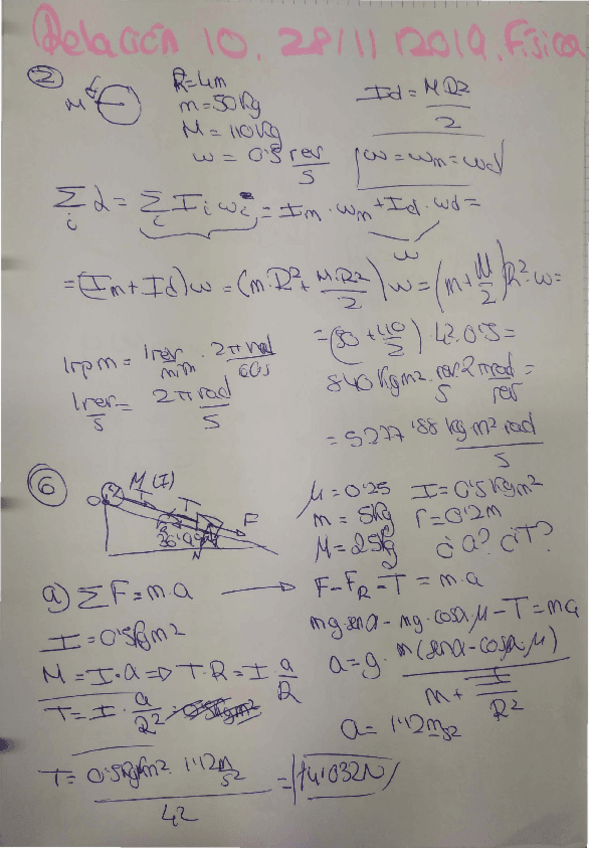 Relación 10. 28/11/2019. Física
② M d R=4m
m=50kg
M=110kg
ω = 0'5 rev/s
Id = MR²/2
ω=ωm=ωd
Σi L = Σi Ii ωi = Im · ωm + Id · ωd =
ω
=(Im+Id)ω = (m·R²+ M·R²/2) ω = (m+ M/2) R²·ω=
=(50 + 110/2) · 4²·0'5=
1rpm = 1rev/min · 2π rad/60s
840 kgm² · rev/s 2π rad/rev =
1rev/s = 2π rad/s
= 5277'88 kg m² rad/s
⑥ M(I) T F
36'9º N
μ = 0'25 I = 0'5 kgm²
m = 5kg r = 0'2m
M = 25kg ¿a? ¿T?
a) ΣF = m·a → F-FR-T = m·a
mg·senα - mg·cosα·μ - T = ma
I = 0'5kgm²
M = I·α ⇒ T·R = I a/R
a = g· m(senα-cosα·μ) / m + I/R²
T = I · a/R²
a = 1'12 m/s²
T = 0'5kgm² · 1'12 m/s² / 42 = 14'032N